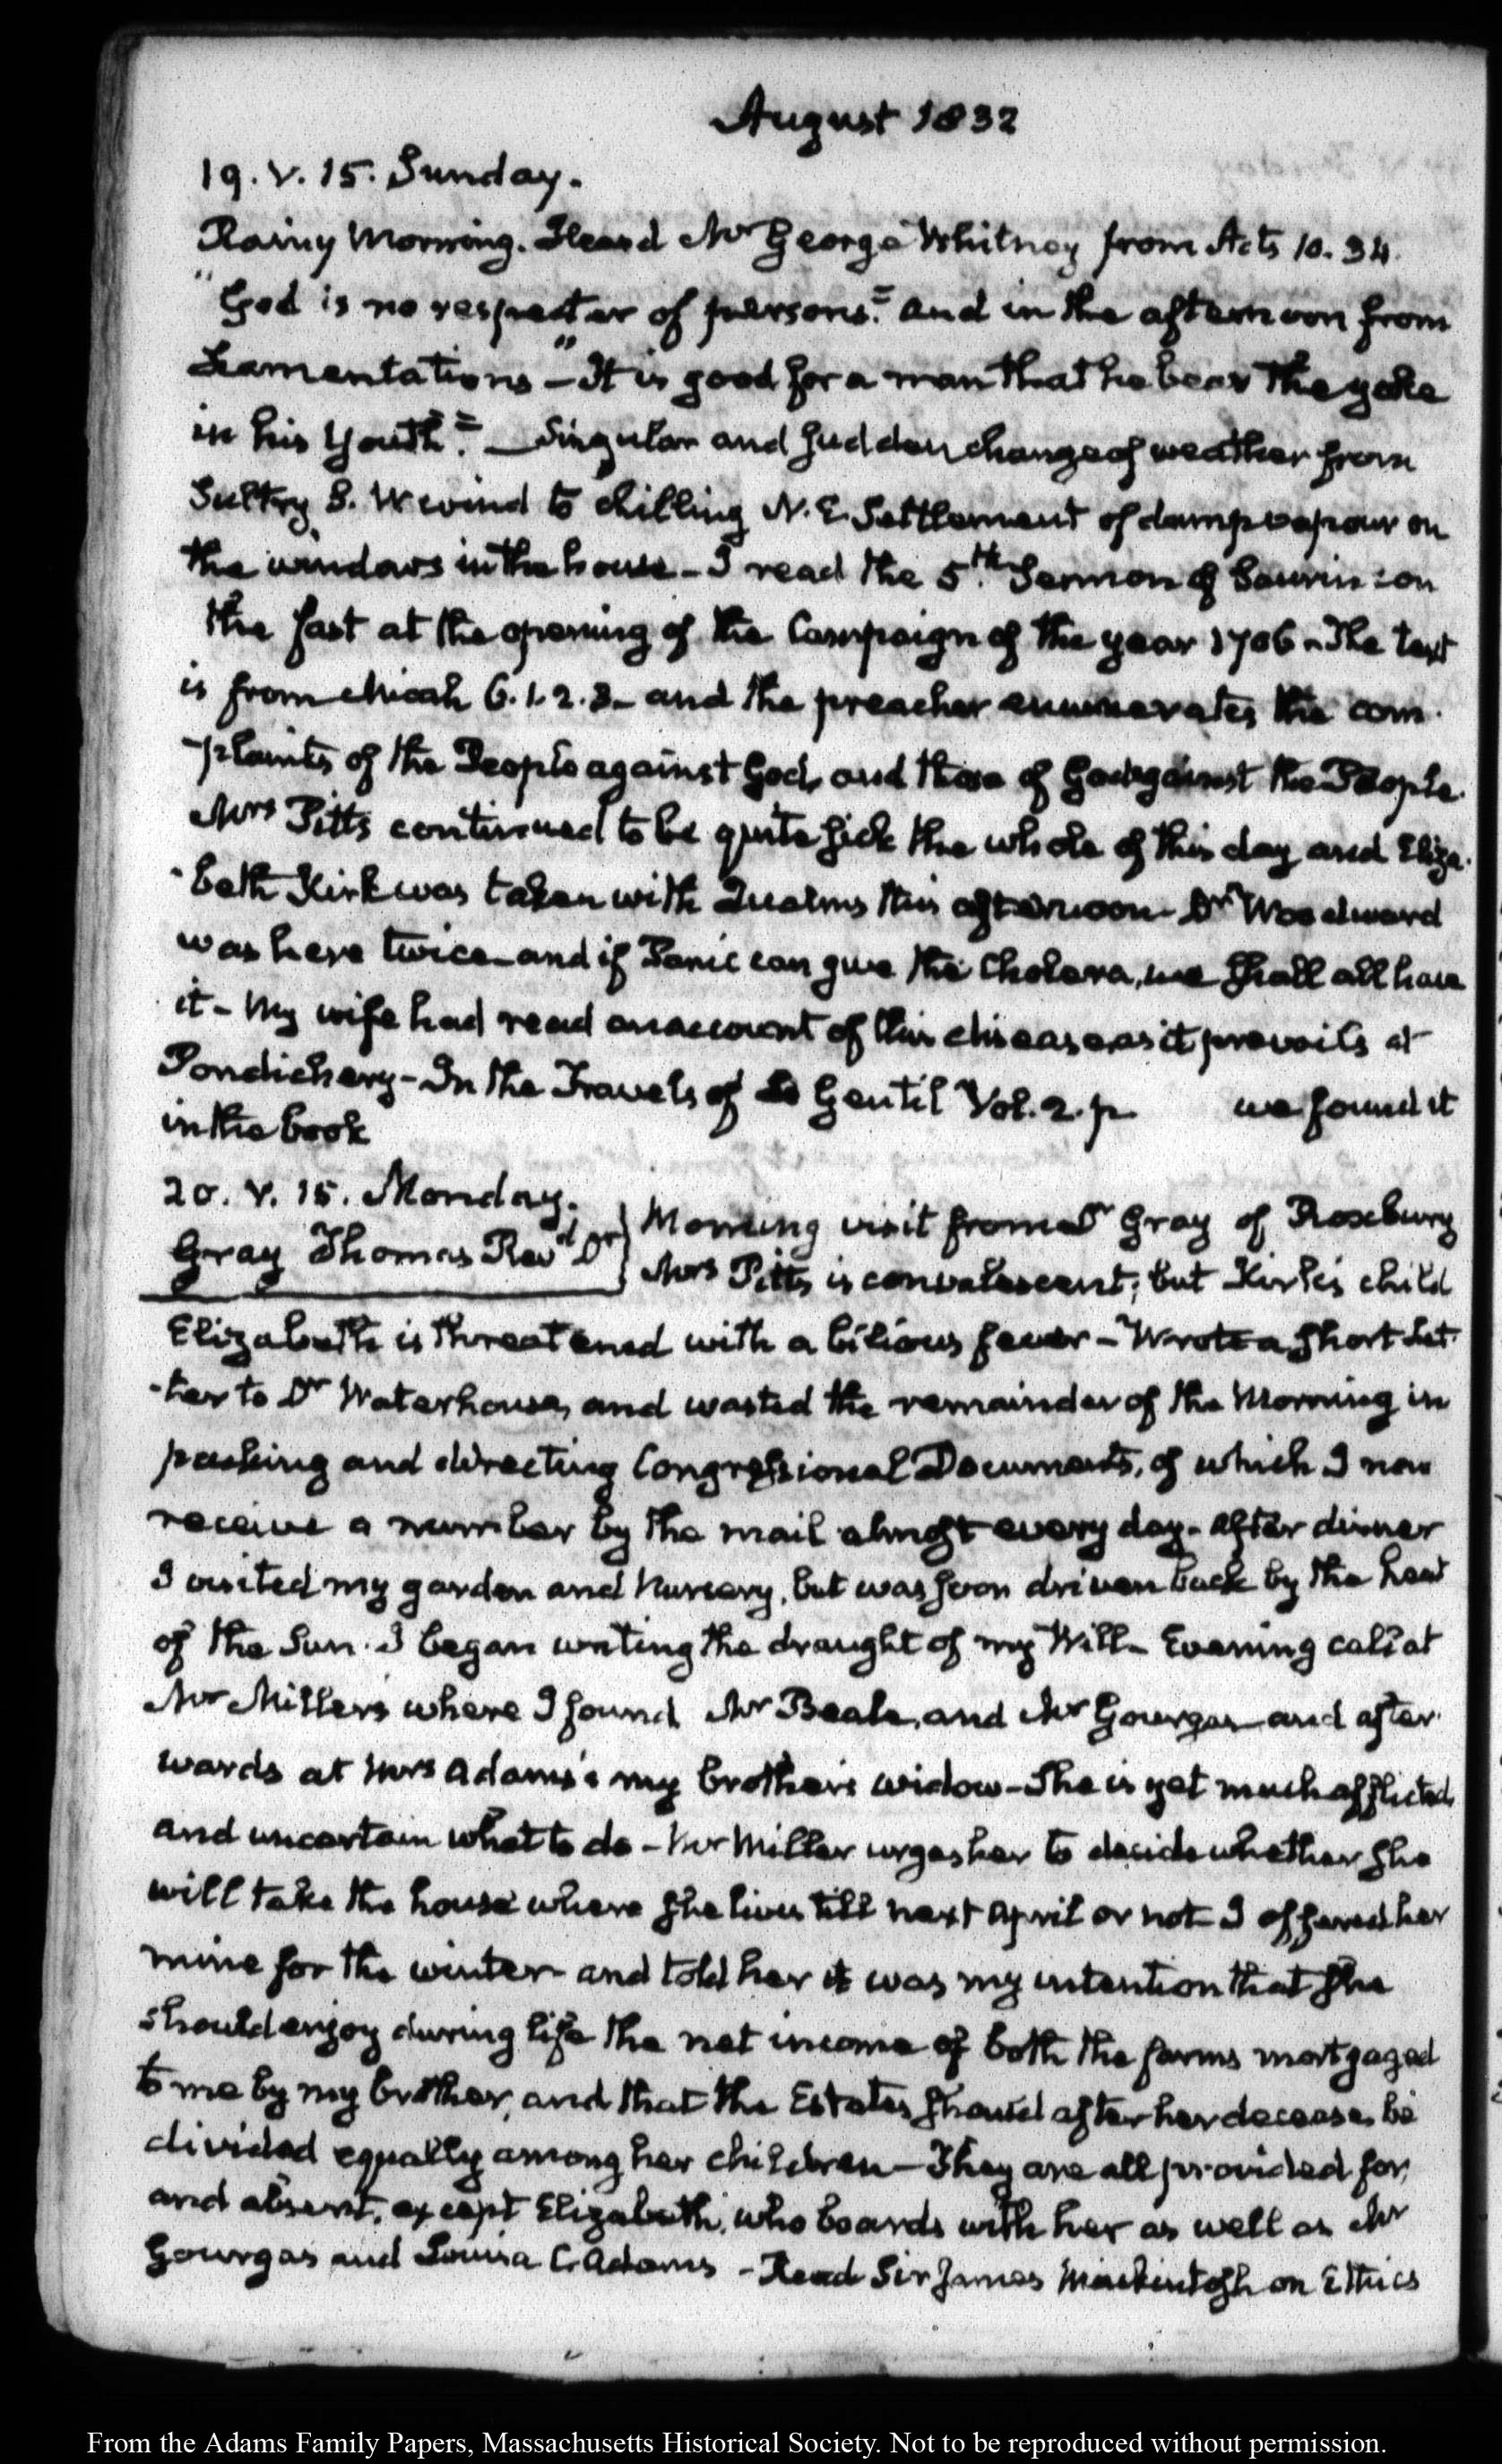 August 1832
19. V. 15. Sunday.
Rainy Morning. Heard Mr George Whitney from Acts 10. 34.
"God is no respecter of persons." and in the afternoon from
Lamentations — "It is good for a man that he bear the yoke
in his Youth." — Singular and sudden change of weather from
Sultry S. W wind to chilling N. E. Settlement of damp vapour on
the windows in the house - I read the 5.th Sermon of Saurin: on
the fast at the opening of the Campaign of the year 1706 - The text
is from Micah 6. 1. 2. 3 - and the preacher enumerates the com-
-plaints of the People against God, and those of God against the People.
Mrs Pitts continued to be quite sick the whole of this day and Eliza-
-beth Kirk was taken with Qualms this afternoon - Dr Woodward
was here twice - and if Panic can give the Cholera, we shall all have
it - My wife had read an account of this disease as it prevails at
Pondichery - In the Travels of Le Gentil Vol. 2. p we found it
in the book
20. V. 15. Monday.
Gray Thomas Revd Dr } Morning visit from Dr Gray of Roxbury
Mrs Pitts is convalescent; but Kirk's child
Elizabeth is threatened with a bilious fever - Wrote a short Let-
-ter to Dr Waterhouse, and wasted the remainder of the Morning in
packing and directing Congressional Documents, of which I now
receive a number by the mail almost every day - After dinner
I visited my garden and Nursery, but was soon driven back by the heat
of the Sun. I began writing the draught of my Will - Evening call at
Mr Miller's where I found Mr Beale, and Mr Gourgas and after-
wards at Mrs Adams's my brother's widow - She is yet much afflicted,
and uncertain what to do - Mr Miller urges her to decide whether she
will take the house where she lives till next April or not - I offered her
mine for the winter - and told her it was my intention that she
should enjoy during life the net income of both the farms mortgaged
to me by my brother, and that the Estates should after her decease, be
divided equally among her children - They are all provided for,
and absent, except Elizabeth, who boards with her as well as Mr
Gourgas and Louisa C. Adams - Read Sir James Mackintosh on Ethics
From the Adams Family Papers, Massachusetts Historical Society. Not to be reproduced without permission.